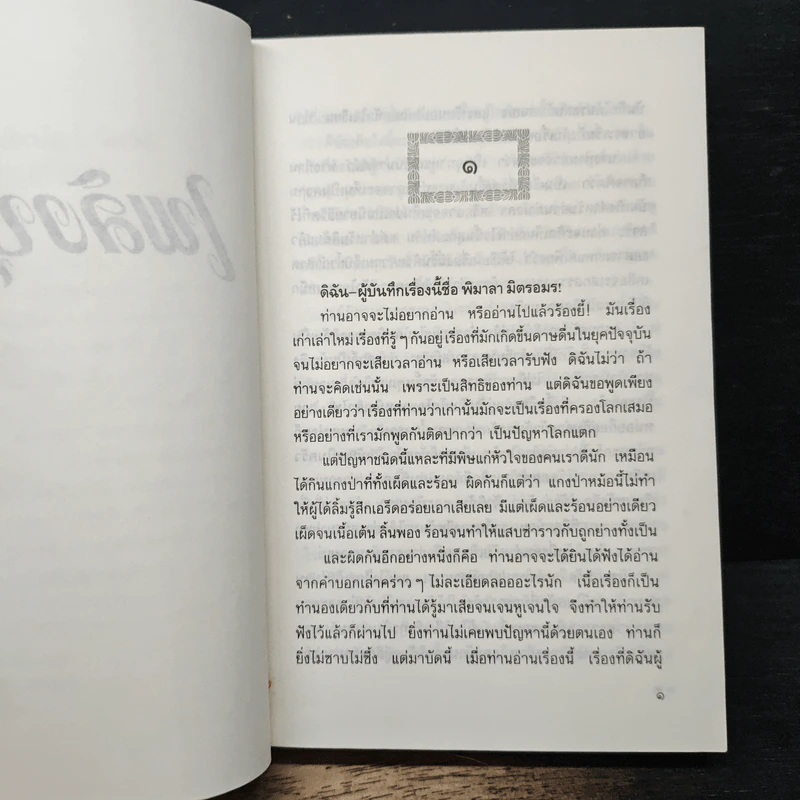 ๑
ดิฉัน–ผู้บันทึกเรื่องนี้ชื่อ พิมาลา มิตรอมร!
ท่านอาจจะไม่อยากอ่าน หรืออ่านไปแล้วร้องยี้! มันเรื่อง
เก่าเล่าใหม่ เรื่องที่รู้ ๆ กันอยู่ เรื่องที่มักเกิดขึ้นดาษดื่นในยุคปัจจุบัน
จนไม่อยากจะเสียเวลาอ่าน หรือเสียเวลารับฟัง ดิฉันไม่ว่า ถ้า
ท่านจะคิดเช่นนั้น เพราะเป็นสิทธิของท่าน แต่ดิฉันขอพูดเพียง
อย่างเดียวว่า เรื่องที่ท่านว่าเก่านั้นมักจะเป็นเรื่องที่ครองโลกเสมอ
หรืออย่างที่เรามักพูดกันติดปากว่า เป็นปัญหาโลกแตก
แต่ปัญหาชนิดนี้แหละที่มีพิษแก่หัวใจของคนเราดีนัก เหมือน
ได้กินแกงป่าที่ทั้งเผ็ดและร้อน ผิดกันก็แต่ว่า แกงป่าหม้อนี้ไม่ทำ
ให้ผู้ได้ลิ้มรู้สึกเอร็ดอร่อยเอาเสียเลย มีแต่เผ็ดและร้อนอย่างเดียว
เผ็ดจนเนื้อเต้น ลิ้นพอง ร้อนจนทำให้แสบซ่าราวกับถูกย่างทั้งเป็น
และผิดกันอีกอย่างหนึ่งก็คือ ท่านอาจจะได้ยินได้ฟังได้อ่าน
จากคำบอกเล่าคร่าว ๆ ไม่ละเอียดลออะไรนัก เนื้อเรื่องก็เป็น
ทำนองเดียวกับที่ท่านได้รู้มาเสียจนเจนหูเจนใจ จึงทำให้ท่านรับ
ฟังไว้แล้วก็ผ่านไป ยิ่งท่านไม่เคยพบปัญหานี้ด้วยตนเอง ท่านก็
ยิ่งไม่ซาบไม่ซึ้ง แต่มาบัดนี้ เมื่อท่านอ่านเรื่องนี้ เรื่องที่ดิฉันผู้
๑